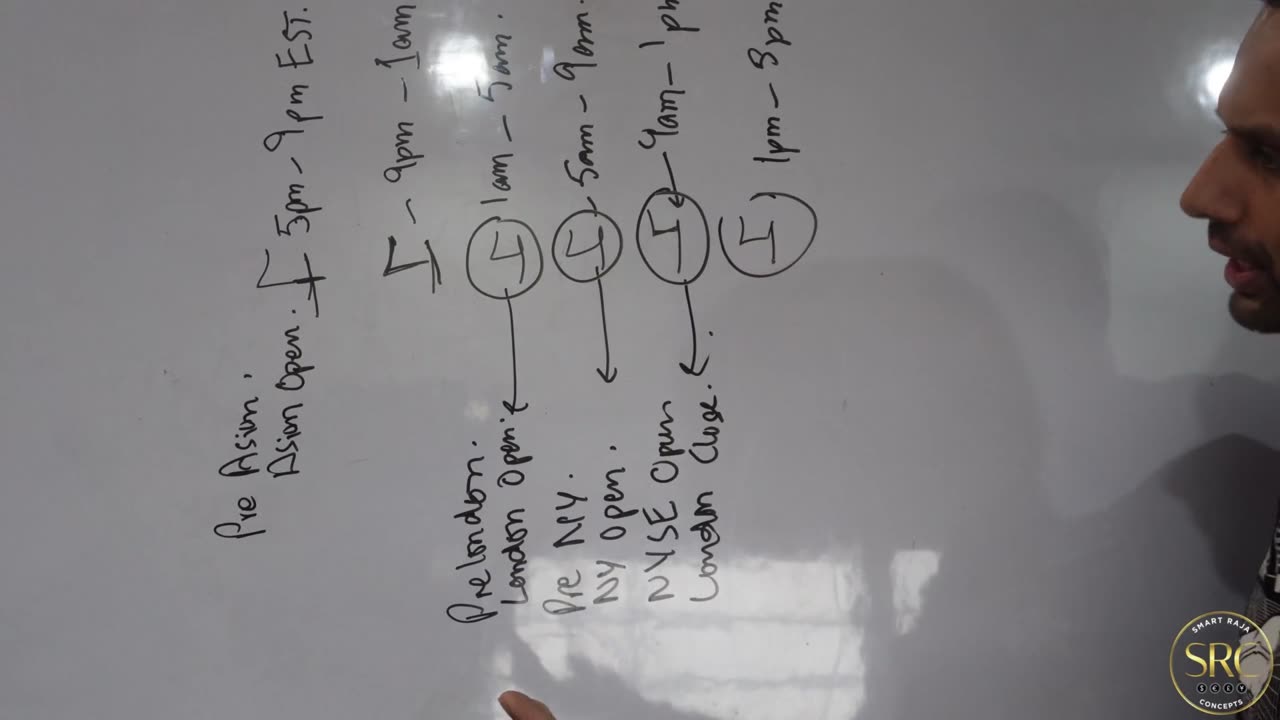 Pre Asian.
Asian Open. I 5pm - 9pm EST.
I - 9pm - 1am
Prelondon.
London Open. I 1am - 5am.
Pre NY.
NY Open. I - 5am - 9am.
NYSE Open
London Close. I - 9am - 1pm
I 1pm - 3pm
SMART RAJA
SRC
CONCEPTS